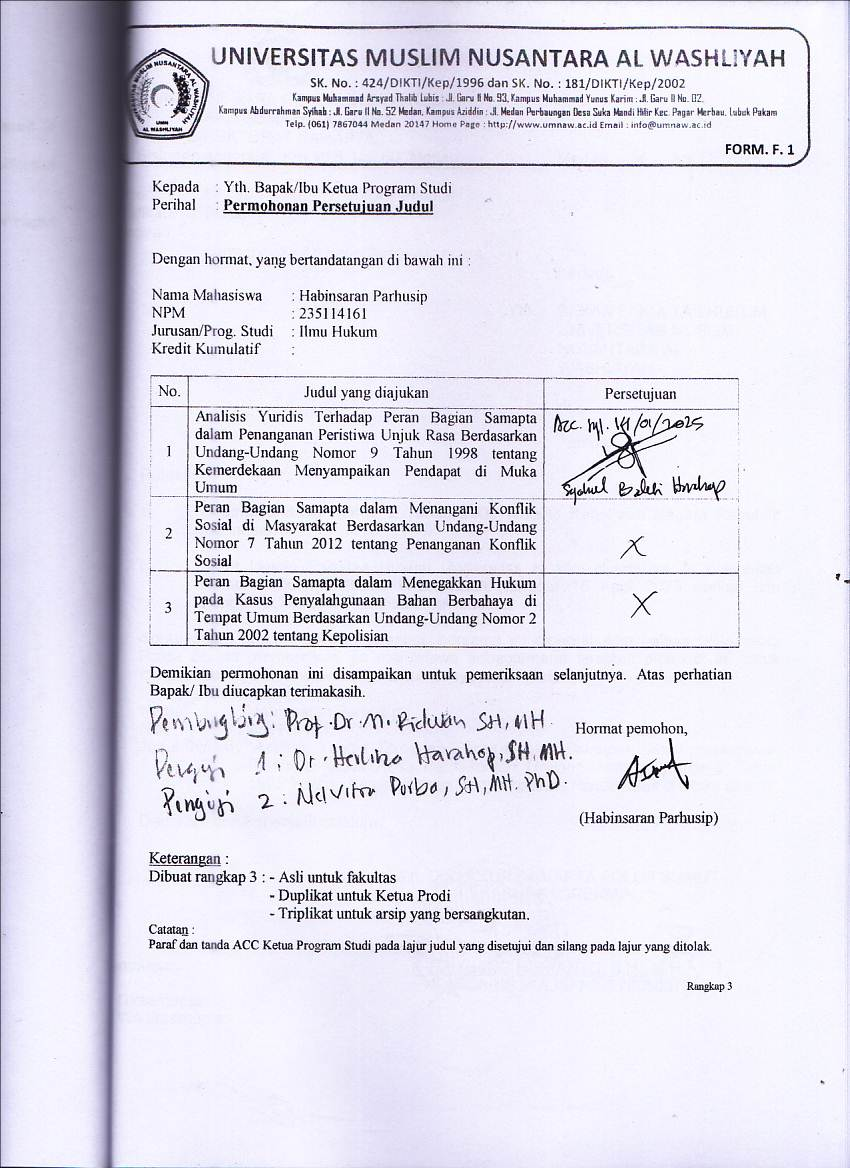 UNIVERSITAS MUSLIM NUSANTARA AL WASHLIYAH
SK. No. : 424/DIKTI/Kep/1996 dan SK. No. : 181/DIKTI/Kep/2002
Kampus Muhammad Arsyad Thalib Lubis : Jl. Garu II No. 93, Kampus Muhammad Yunus Karim : Jl. Garu II No. 02,
Kampus Abdurrahman Syihab : Jl. Garu II No. 52 Medan, Kampus Aziddin : Jl. Medan Perbaungan Desa Suka Mandi Hilir Kec. Pagar Merbau, Lubuk Pakam
Telp. (061) 7867044 Medan 20147 Home Page : http://www.umnaw.ac.id Email : info@umnaw.ac.id
UNIVERSITAS MUSLIM NUSANTARA AL WASHLIYAH
UMN
AL WASHLIYAH
FORM. F. 1
Kepada : Yth. Bapak/Ibu Ketua Program Studi
Perihal : Permohonan Persetujuan Judul
Dengan hormat, yang bertandatangan di bawah ini :
Nama Mahasiswa : Habinsaran Parhusip
NPM : 235114161
Jurusan/Prog. Studi : Ilmu Hukum
Kredit Kumulatif :
No. Judul yang diajukan Persetujuan
1 Analisis Yuridis Terhadap Peran Bagian Samapta
dalam Penanganan Peristiwa Unjuk Rasa Berdasarkan
Undang-Undang Nomor 9 Tahun 1998 tentang
Kemerdekaan Menyampaikan Pendapat di Muka
Umum
Acc. 14/01/2025
2 Peran Bagian Samapta dalam Menangani Konflik
Sosial di Masyarakat Berdasarkan Undang-Undang
Nomor 7 Tahun 2012 tentang Penanganan Konflik
Sosial
X
3 Peran Bagian Samapta dalam Menegakkan Hukum
pada Kasus Penyalahgunaan Bahan Berbahaya di
Tempat Umum Berdasarkan Undang-Undang Nomor 2
Tahun 2002 tentang Kepolisian
X
Demikian permohonan ini disampaikan untuk pemeriksaan selanjutnya. Atas perhatian
Bapak/ Ibu diucapkan terimakasih.
Pembimbing : Prof. Dr. M. Ridwan SH, MH
Hormat pemohon,
Penguji 1 : Dr. Herlina Harahap, SH, MH.
Penguji 2 : Nelvitia Purba, SH, MH. PhD.
(Habinsaran Parhusip)
Keterangan :
Dibuat rangkap 3 : - Asli untuk fakultas
- Duplikat untuk Ketua Prodi
- Triplikat untuk arsip yang bersangkutan.
Catatan :
Paraf dan tanda ACC Ketua Program Studi pada lajur judul yang disetujui dan silang pada lajur yang ditolak.
Rangkap 3